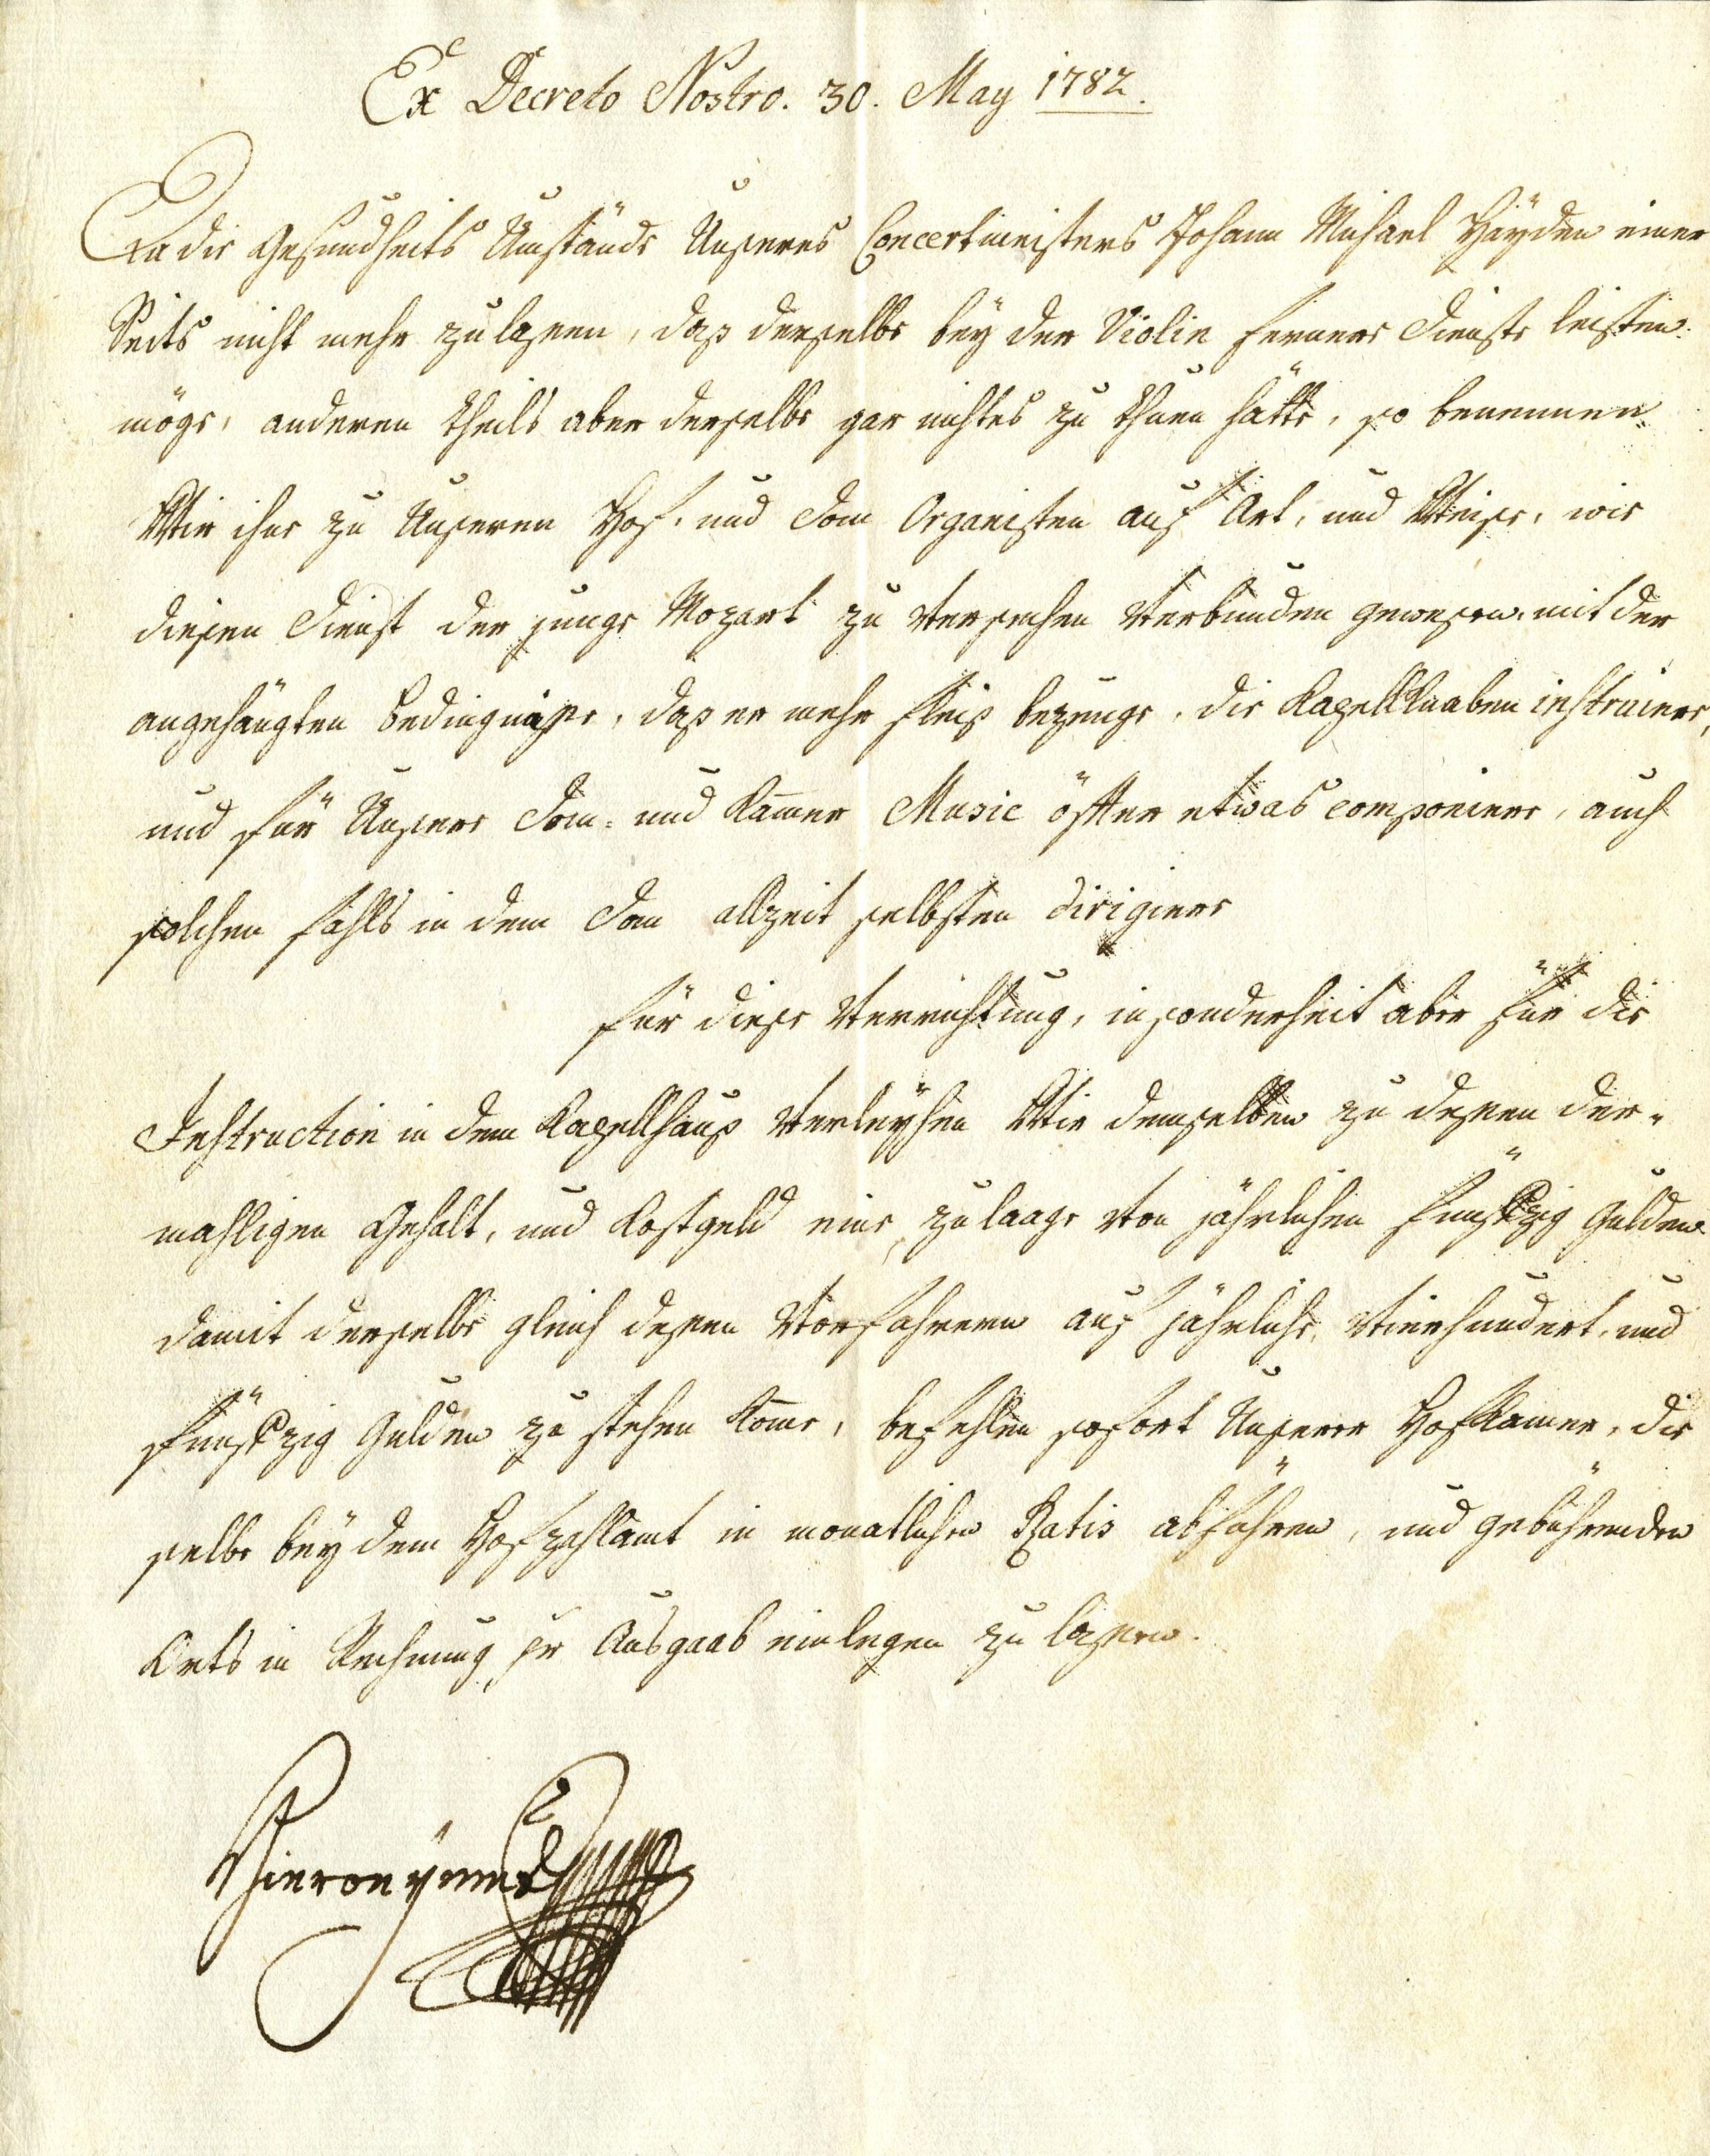 Ex Decreto Nostro. 30. May 1782.
Da die Gesundheits Umstände Unseres Concertmeisters Johann Michael Haÿden einer
Seits nicht mehr zulassen, daß derselbe beÿ der Violin fernere Dienste leisten
möge, anderen theils aber derselbe gar nichtes zu thuen hätte, so benennen
Wir ihne zu Unseren Hof- und Dom Organisten auf Art, und Weise, wie
diesen Dienst der junge Mozart zu versehen verbunden gewesen, mit der
angehängten Bedingnüsse, daß er mehr Fleiß bezeuge, die Kapellknaben instruiere,
und für Unsere Dom- und Kammer Music öfter etwas componiere, auch
solchen fahls in dem Dom allzeit selbsten dirigiere
Für diese Verrichtung, insonderheit aber für die
Instruction in dem Kapellhauß verleÿhen Wir demselben zu dessen der-
mahligen Gehalt, und Kostgeld eine zulaage von jährlichen fünfzig Gulden
damit derselbe gleich dessen Vorfahreren auf jährliche vierhundert, und
fünfzig Gulden zu stehen komme, befehlen sofort Unserer Hofkammer, die
selbe beÿ dem Hofzahlamt in monatlichen Ratis abführen, und gebührenden
Orts in Rechnung pr Ausgaab einlegen zu lassen.
Hieronÿmus